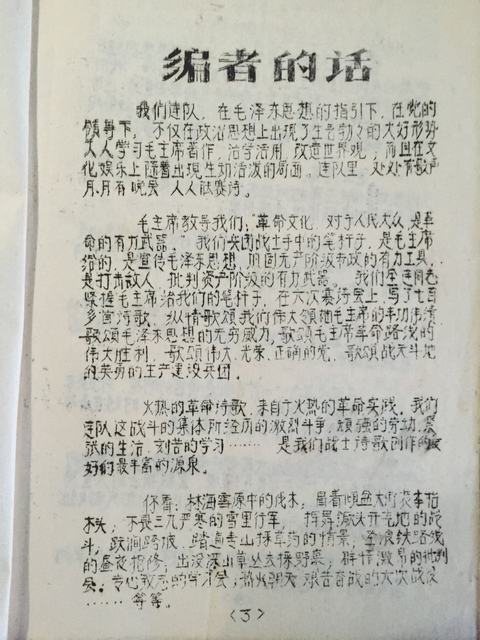 编者的话
我们连队，在毛泽东思想的指引下，在党的
领导下，不仅在政治思想上出现了生气勃々的大好形势
人人学习毛主席著作，活学活用，改造世界观；而且在文
化娱乐上随着出现生动活泼的局面。连队里，处处有歌声
月月有晚会 人人能赛诗。
毛主席教导我们："革命文化，对于人民大众，是革
命的有力武器。"我们兵团战士手中的笔杆子，是毛主席
给的，是宣传毛泽东思想，巩固无产阶级专政的有力工具，
是打击敌人，批判资产阶级的有力武器。我们全连同志
紧握毛主席给我们的笔杆子，在六次赛诗会上，写了七百
多首诗歌，纵情歌颂我们伟大领袖毛主席的丰功伟绩，
歌颂毛泽东思想的无穷威力，歌颂毛主席革命路线的
伟大胜利，歌颂伟大、光荣、正确的党，歌颂战天斗地
的英勇的生产建设兵团。
火热的革命诗歌，来自于火热的革命实践。我们
连队这战斗的集体所经历的激烈斗争，顽强的劳动，紧
张的生活，刻苦的学习…… 是我们战士诗歌创作的最
好的最丰富的源泉。
你看：林海雪原中的伐木，冒着倾盆大雨
木头，不畏三九严寒的雪里行军，挥舞 开荒地的战
斗，跃涧跨坡，踏遍青山採草药的情景，
的昼夜抢修，出没深山草丛去採野菜，群情激昂的批判
会，专心致志的学习会，热火朝天 艰苦奋战的大次战役
……等等。
<3>